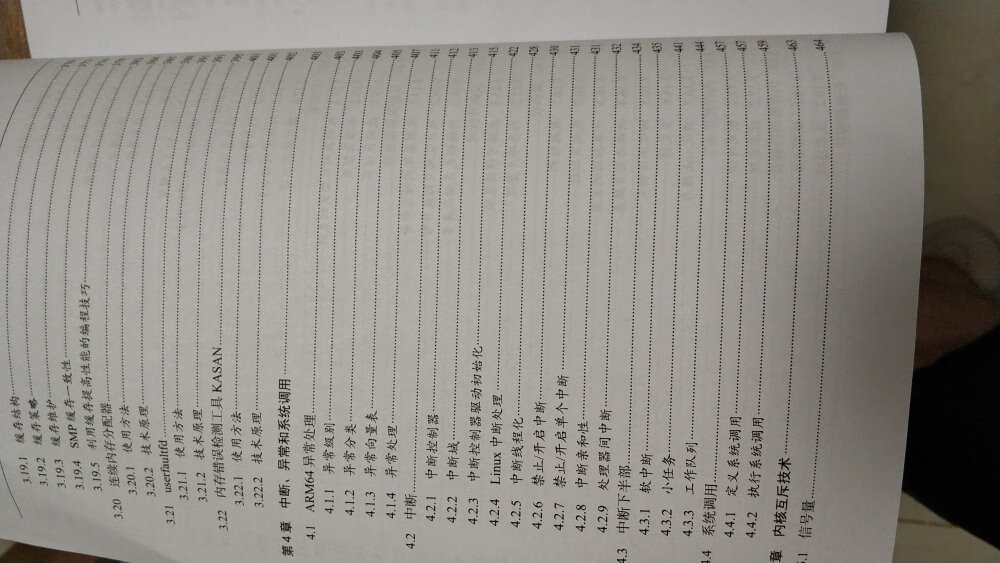 3.19.1 缓存结构
3.19.2 缓存策略
3.19.3 缓存维护
3.19.4 SMP 缓存一致性
3.19.5 利用缓存提高性能的编程技巧
3.20 连续内存分配器
3.20.1 使用方法
3.20.2 技术原理
3.21 userfaultfd
3.21.1 使用方法
3.21.2 技术原理
3.22 内存错误检测工具 KASAN
3.22.1 使用方法
3.22.2 技术原理
第 4 章 中断、异常和系统调用
4.1 ARM64 异常处理
4.1.1 异常级别
4.1.2 异常分类
4.1.3 异常向量表
4.1.4 异常处理
4.2 中断
4.2.1 中断控制器 411
4.2.2 中断域 412
4.2.3 中断控制器驱动初始化 413
4.2.4 Linux 中断处理 415
4.2.5 中断线程化 422
4.2.6 禁止/开启中断 428
4.2.7 禁止/开启单个中断 430
4.2.8 中断亲和性 431
4.2.9 处理器间中断 431
4.3 中断下半部 432
4.3.1 软中断 434
4.3.2 小任务 435
4.3.3 工作队列 441
4.4 系统调用 444
4.4.1 定义系统调用 457
4.4.2 执行系统调用 457
章 内核互斥技术
5.1 信号量 464